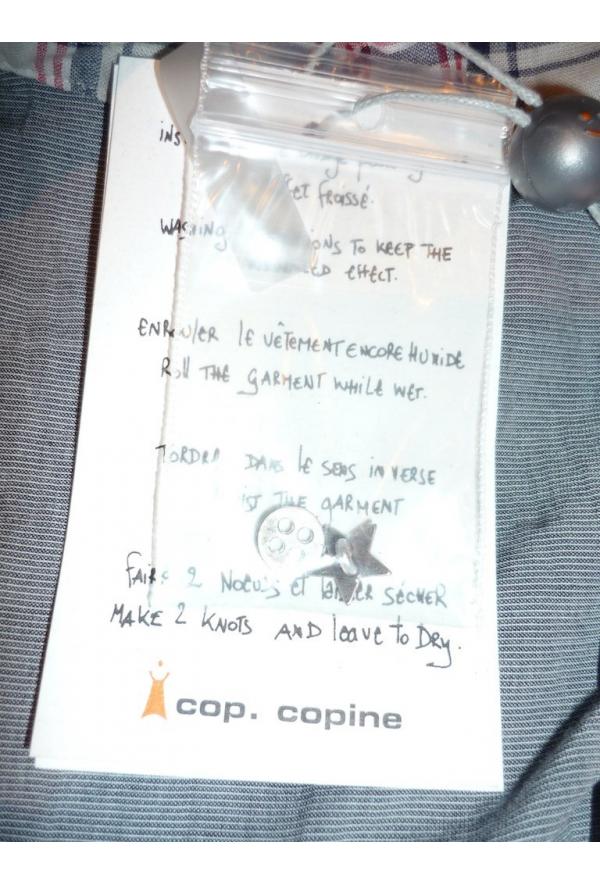 ET FROISSÉ.
WASHING TO KEEP THE
EFFECT.
ENROULER LE VÊTEMENT ENCORE HUMIDE
ROLL THE GARMENT WHILE WET.
TORDRE DANS LE SENS INVERSE
THE GARMENT
FAIRE 2 NOEUDS ET LAISSER SÉCHER
MAKE 2 KNOTS AND leave to DRY.
cop. copine